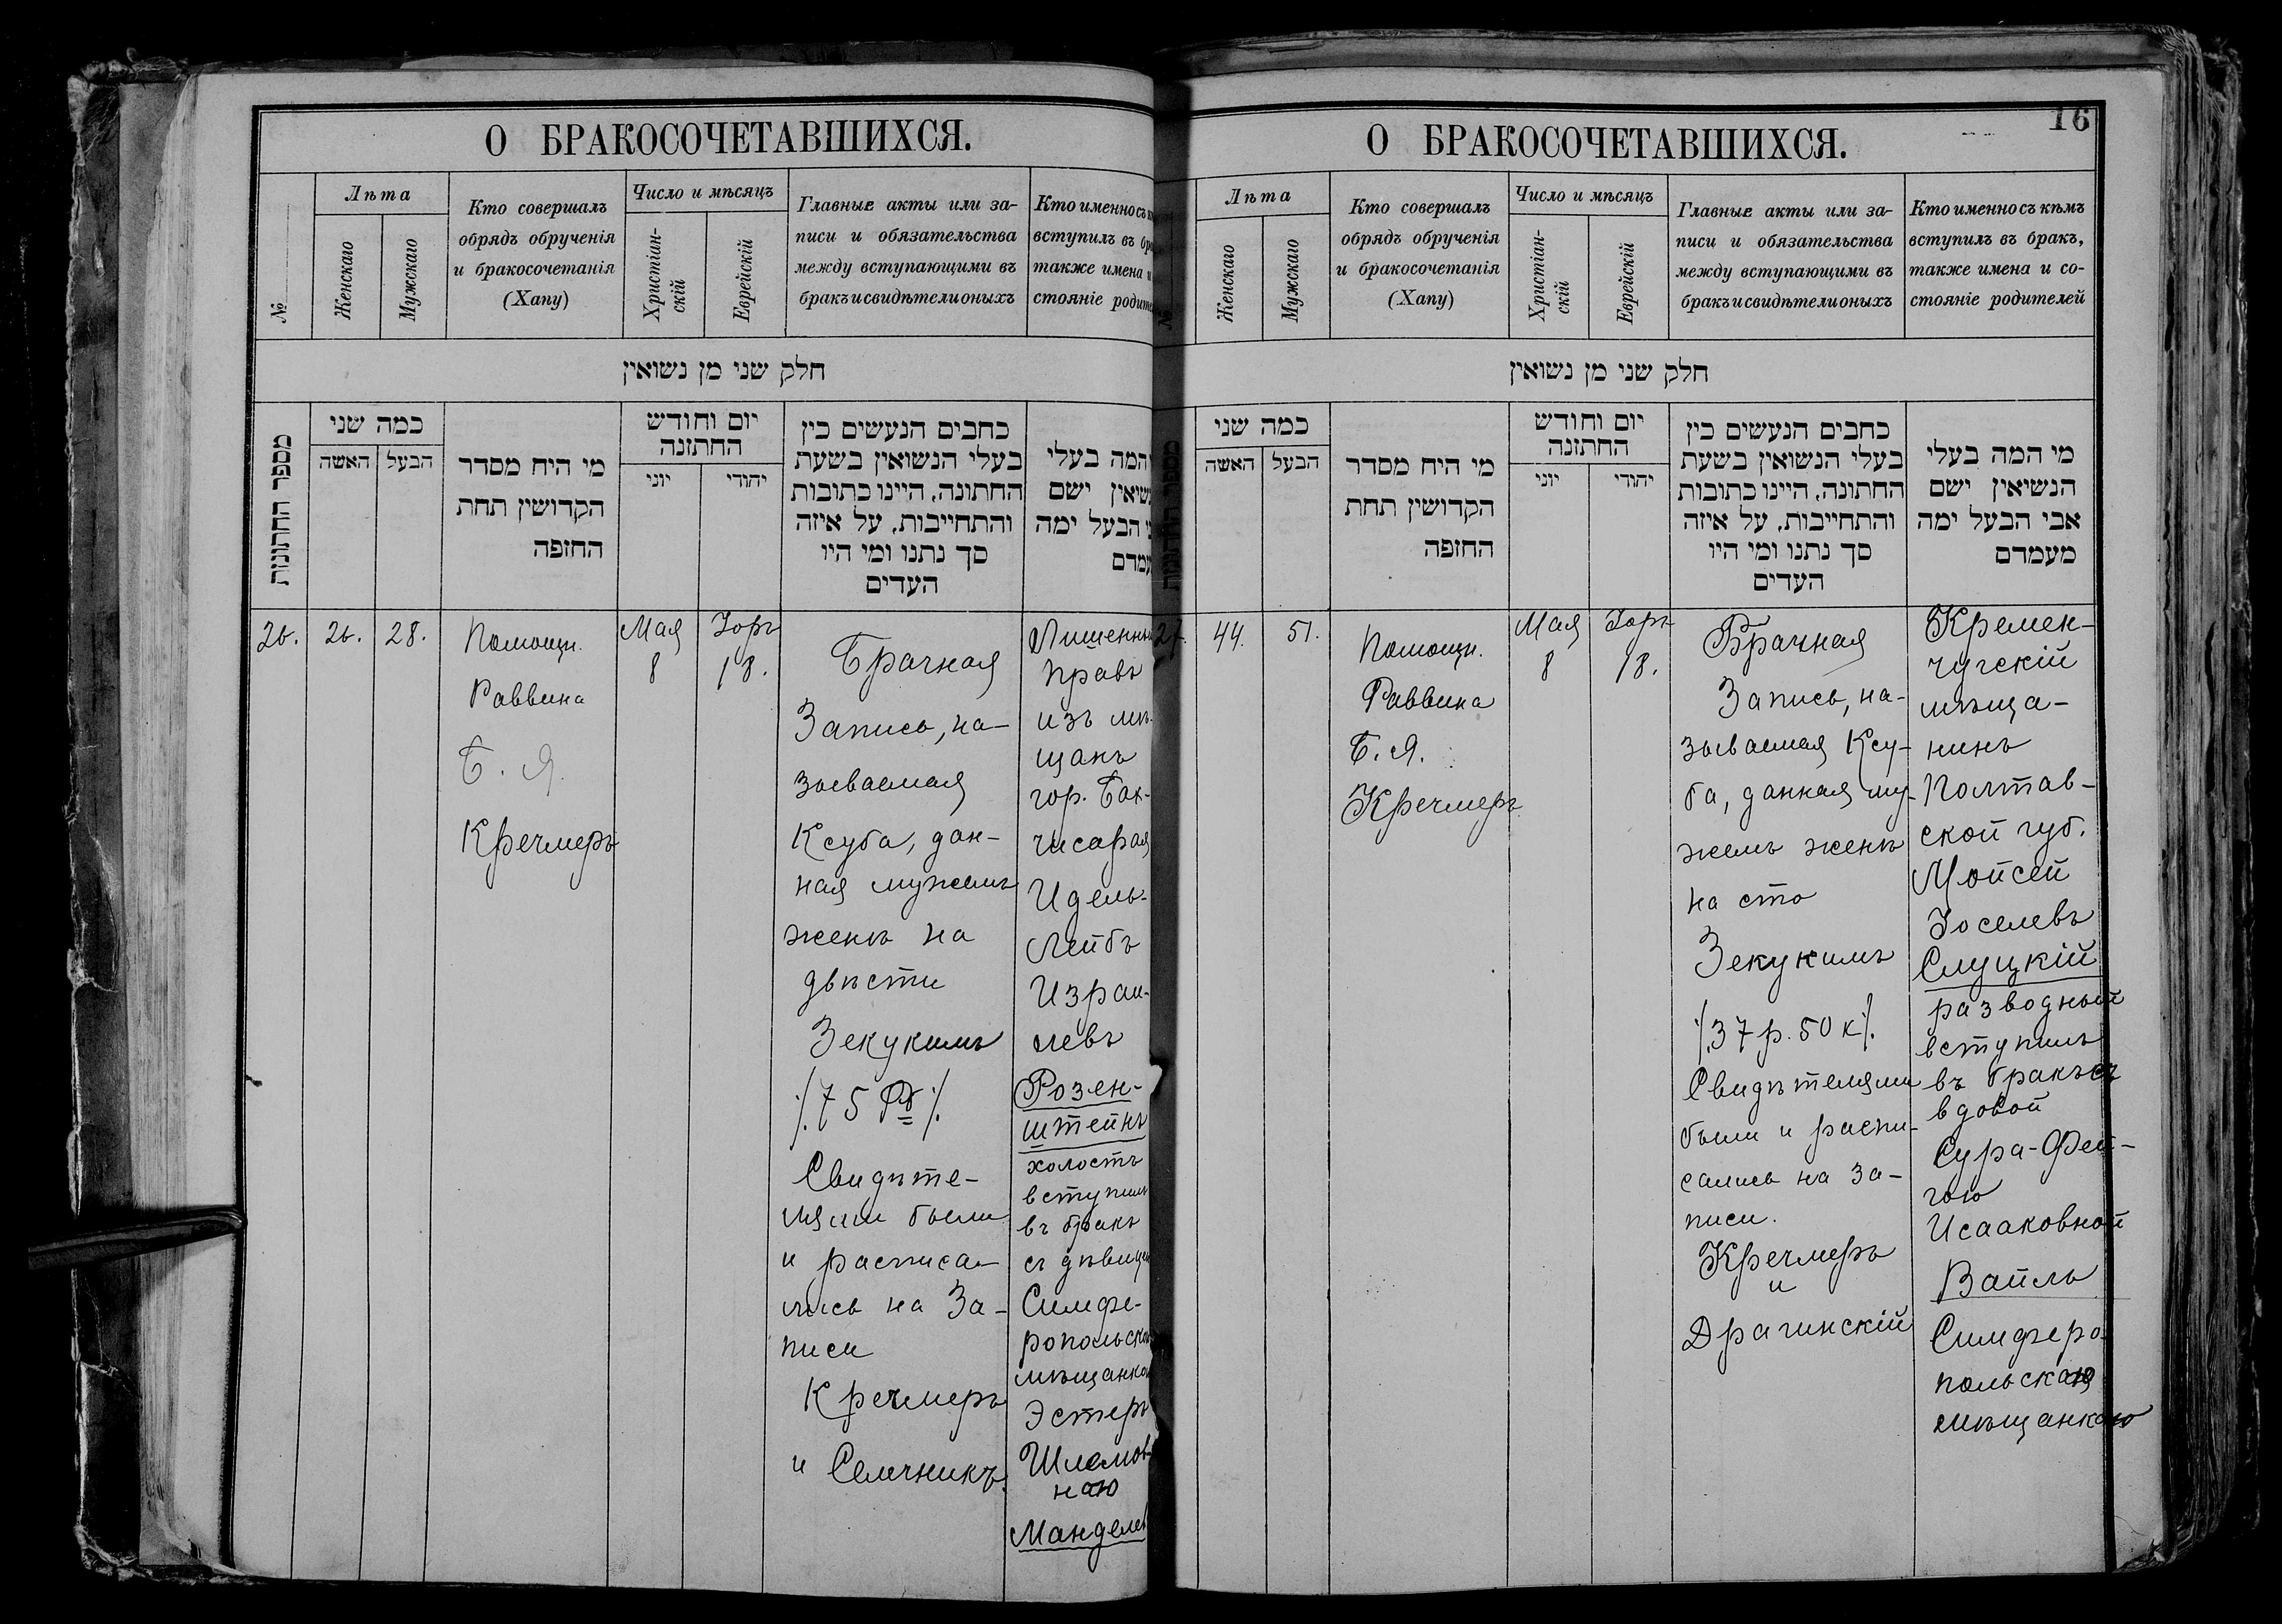 О БРАКОСОЧЕТАВШИХСЯ.
№
Лѣта
Женскаго
Мужскаго
Кто совершалъ
обрядъ обрученія
и бракосочетанія
(Хапу)
Число и мѣсяцъ
Христіан-
скій
Еврейскій
Главные акты или за-
писи и обязательства
между вступающими въ
бракъ и свидѣтели оныхъ
Кто именно съ
вступилъ въ
также имена и
стояніе
חלק שני מן נשואין
מספר החתונות
כמה שני
האשה
הבעל
מי היח מסדר
הקדושין תחת
החופה
יום וחודש
החתונה
יוני
יהודי
כחבים הנעשים בין
בעלי הנשואין בשעת
החתונה, היינו כתובות
והתחייבות, על איזה
סך נתנו ומי היו
העדים
המה בעלי
ישם
הבעל ימה
26.
26.
28.
Помощн.
Раввина
Б. Я.
Кречмеръ
Мая
8
Іоръ
18.
Брачная
Запись, на-
зываемая
Ксуба, дан-
ная мужемъ
женѣ на
двѣсти
Зекукимъ
/75 Рб/
Свидѣте-
лями были
и расписа-
лись на За-
писи
Кречмеръ
и Селичникъ.
Лишенный
правъ
изъ мѣ-
щанъ
гор. Бах-
чисарая
Идель-
Лейбъ
Израи-
левъ
Розен-
штейнъ
холостъ
вступилъ
въ бракъ
съ дѣвицей
Симфе-
ропольской
мѣщанкой
Эстеръ
Шлемов-
ною
Мандель
16
О БРАКОСОЧЕТАВШИХСЯ.
№
Лѣта
Женскаго
Мужскаго
Кто совершалъ
обрядъ обрученія
и бракосочетанія
(Хапу)
Число и мѣсяцъ
Христіан-
скій
Еврейскій
Главные акты или за-
писи и обязательства
между вступающими въ
бракъ и свидѣтели оныхъ
Кто именно съ кѣмъ
вступилъ въ бракъ,
также имена и со-
стояніе родителей
חלק שני מן נשואין
כמה שני
האשה
הבעל
מי היח מסדר
הקדושין תחת
החופה
יום וחודש
החתונה
יוני
יהודי
כחבים הנעשים בין
בעלי הנשואין בשעת
החתונה, היינו כתובות
והתחייבות, על איזה
סך נתנו ומי היו
העדים
מי המה בעלי
הנשיאין ישם
אבי הבעל ימה
מעמדם
27.
44.
51.
Помощн.
Раввина
Б. Я.
Кречмеръ
Мая
8
Іоръ
18.
Брачная
Запись, на-
зываемая Ксу-
ба, данная му-
жемъ женѣ
на сто
Зекукимъ
/37 р. 50 к/.
Свидѣтелями
были и распи-
сались на за-
писи.
Кречмеръ
и
Драгинскій
Кремен-
чугскій
мѣща-
нинъ
Полтав-
ской губ.
Мойсей
Іоселевъ
Слуцкій
разводный
вступилъ
въ бракъ съ
вдовой
Сура-Фей-
гою
Исааковной
Вайль
Симферо-
польскою
мѣщанкою